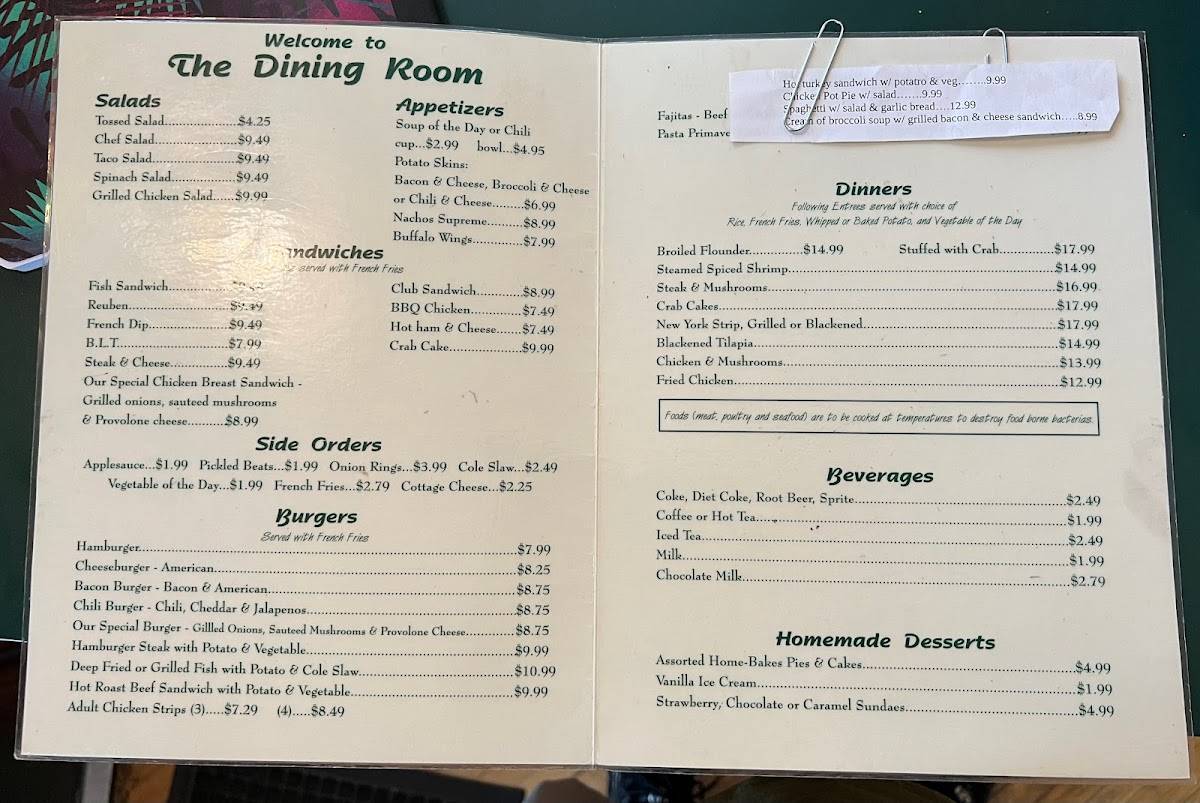 Welcome to
The Dining Room
Salads
Tossed Salad....................$4.25
Chef Salad.......................$9.49
Taco Salad.......................$9.49
Spinach Salad..................$9.49
Grilled Chicken Salad......$9.99
Appetizers
Soup of the Day or Chili
cup...$2.99 bowl...$4.95
Potato Skins:
Bacon & Cheese, Broccoli & Cheese
or Chili & Cheese.........$6.99
Nachos Supreme..........$8.99
Buffalo Wings..............$7.99
served with French Fries
Fish Sandwich
Reuben..........................$9.49
French Dip.....................$9.49
B.L.T..............................$7.99
Steak & Cheese...............$9.49
Our Special Chicken Breast Sandwich -
Grilled onions, sauteed mushrooms
& Provolone cheese..........$8.99
Club Sandwich.............$8.99
BBQ Chicken..............$7.49
Hot ham & Cheese.......$7.49
Crab Cake....................$9.99
Side Orders
Applesauce...$1.99 Pickled Beats...$1.99 Onion Rings...$3.99 Cole Slaw...$2.49
Vegetable of the Day...$1.99 French Fries...$2.79 Cottage Cheese...$2.25
Burgers
Served with French Fries
Hamburger....................$7.99
Cheeseburger - American....................$8.25
Bacon Burger - Bacon & American....................$8.75
Chili Burger - Chili, Cheddar & Jalapenos....................$8.75
Our Special Burger - Gillled Onions, Sauteed Mushrooms & Provolone Cheese.............$8.75
Hamburger Steak with Potato & Vegetable....................$9.99
Deep Fried or Grilled Fish with Potato & Cole Slaw....................$10.99
Hot Roast Beef Sandwich with Potato & Vegetable....................$9.99
Adult Chicken Strips (3).....$7.29 (4).....$8.49
Hot turkey sandwich w/ potatro & veg........9.99
Chicken Pot Pie w/ salad.......9.99
Spaghetti w/ salad & garlic bread....12.99
Cream of broccoli soup w/ grilled bacon & cheese sandwich.....8.99
Fajitas - Beef
Pasta
Dinners
Following Entrees served with choice of
Rice, French Fries, Whipped or Baked Potato, and Vegetable of the Day
Broiled Flounder..............$14.99 Stuffed with Crab..............$17.99
Steamed Spiced Shrimp....................$14.99
Steak & Mushrooms....................$16.99
Crab Cakes....................$17.99
New York Strip, Grilled or Blackened....................$17.99
Blackened Tilapia....................$14.99
Chicken & Mushrooms....................$13.99
Fried Chicken....................$12.99
Foods (meat, poultry and seafood) are to be cooked at temperatures to destroy food borne bacterias.
Beverages
Coke, Diet Coke, Root Beer, Sprite....................$2.49
Coffee or Hot Tea....................$1.99
Iced Tea....................$2.49
Milk....................$1.99
Chocolate Milk....................$2.79
Homemade Desserts
Assorted Home-Bakes Pies & Cakes....................$4.99
Vanilla Ice Cream....................$1.99
Strawberry, Chocolate or Caramel Sundaes....................$4.99